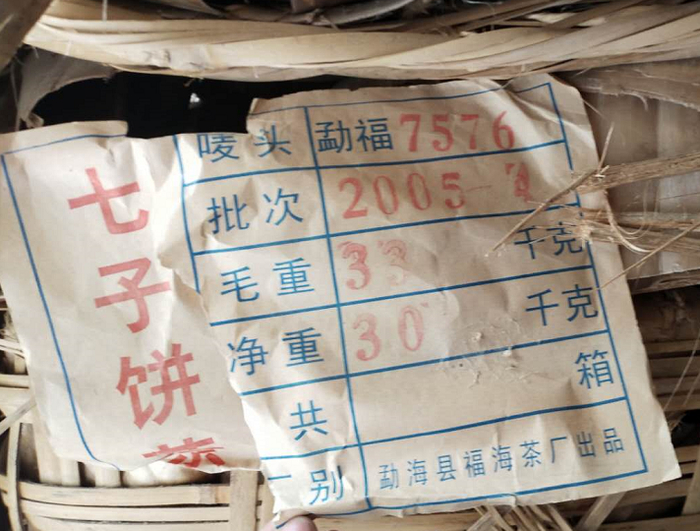 七子饼
唛头 勐福7576
批次 2005
毛重 33 千克
净重 30 千克
共 箱
别 勐海县福海茶厂出品